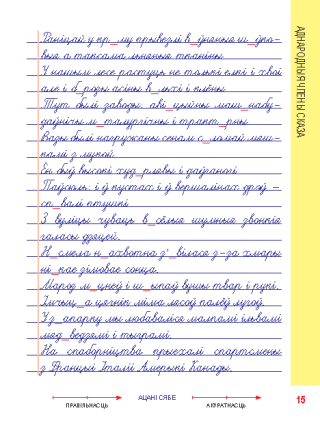 АДНАРОДНЫЯ ЧЛЕНЫ СКАЗА
Раніцай у кр_му прывезлі в_дняныя ш_дко-
выя а таксама льняныя тканіны.
У нашым лесе растуць не толькі елкі і хвоі
але і б_розы асіны в_льхі і клёны.
Тут былі заводы аві_цыйны маш_набу-
даўнічы м_талургічны і тракт_рны.
Вазы былі нагружаны сенам с_ломай меш-
камі з мукой.
Ён быў высокі худ_рлявы і даўганогі.
Паўсюль: і ў кустах і ў вершалінах дрэў -
сп_валі птушкі.
З вуліцы чуваць в_сёлыя шумныя звонкія
галасы дзяцей.
Н_смела н_ахвотна з'_вілася з-за хмары
ні_кае зімовае сонца.
Мароз м_цнеў і ш_ыпаў вушы твар і рукі.
Імчыц_а цягнік міма лясоў палёў лугоў.
У з_апарку мы любаваліся малпамі ільвамі
мяд_ведзямі і тыграмі.
На спаборніцтва прыехалі спартсмены
з Францыі Італіі Амерыкі Канады.
ПРАВІЛЬНАСЦЬ
АЦАНІ СЯБЕ
АКУРАТНАСЦЬ
15